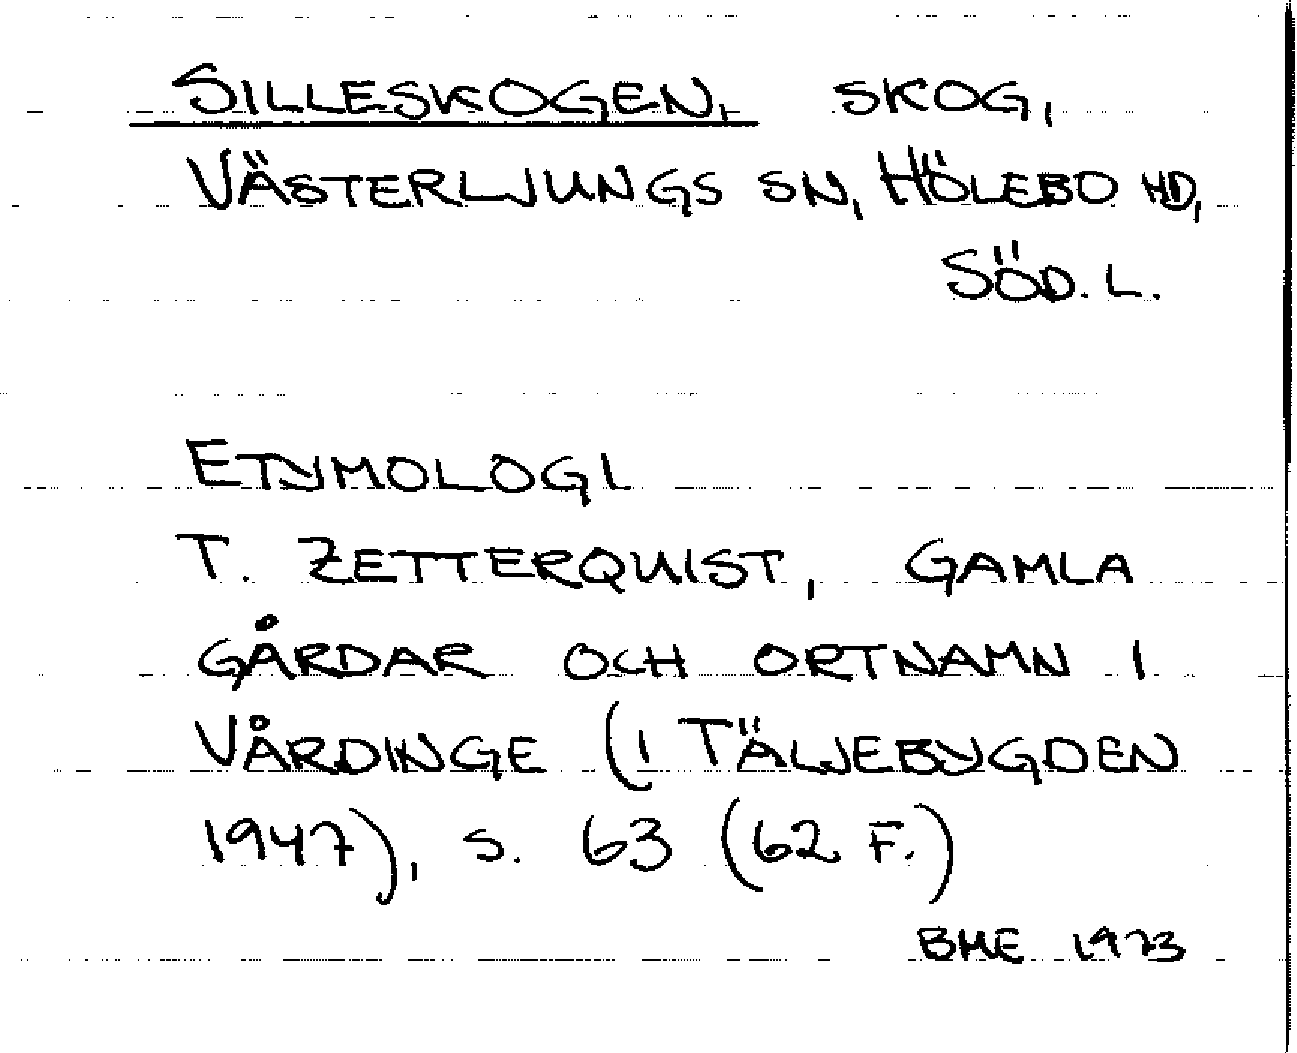 SILLESKOGEN, SKOG,
VÄSTERLJUNGS SN, HÖLEBO HD,
SÖD. L.
ETYMOLOGI
T. ZETTERQUIST, GAMLA
GÅRDAR OCH ORTNAMN I
VÅRDINGE (I TÄLJEBYGDEN
1947), S. 63 (62 F.)
BME 1973